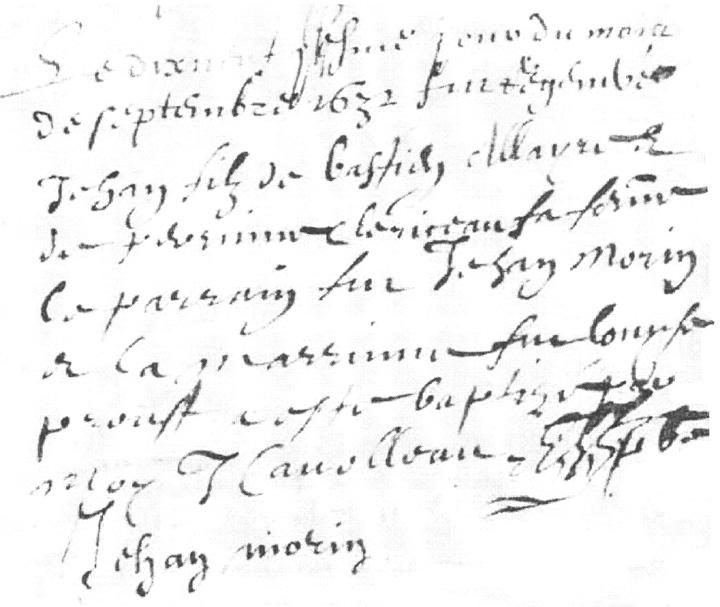 Le dix neuf iesme Jour du mois
de septembre 1632 fut
Jehan filz de bastien Allayre et
de perrinne Clericeau sa feme
le parrain fut Jehan Morin
et la marrinne fut Louyse
proust a este baptize par
Moy J Cavolleau
Jehan morin